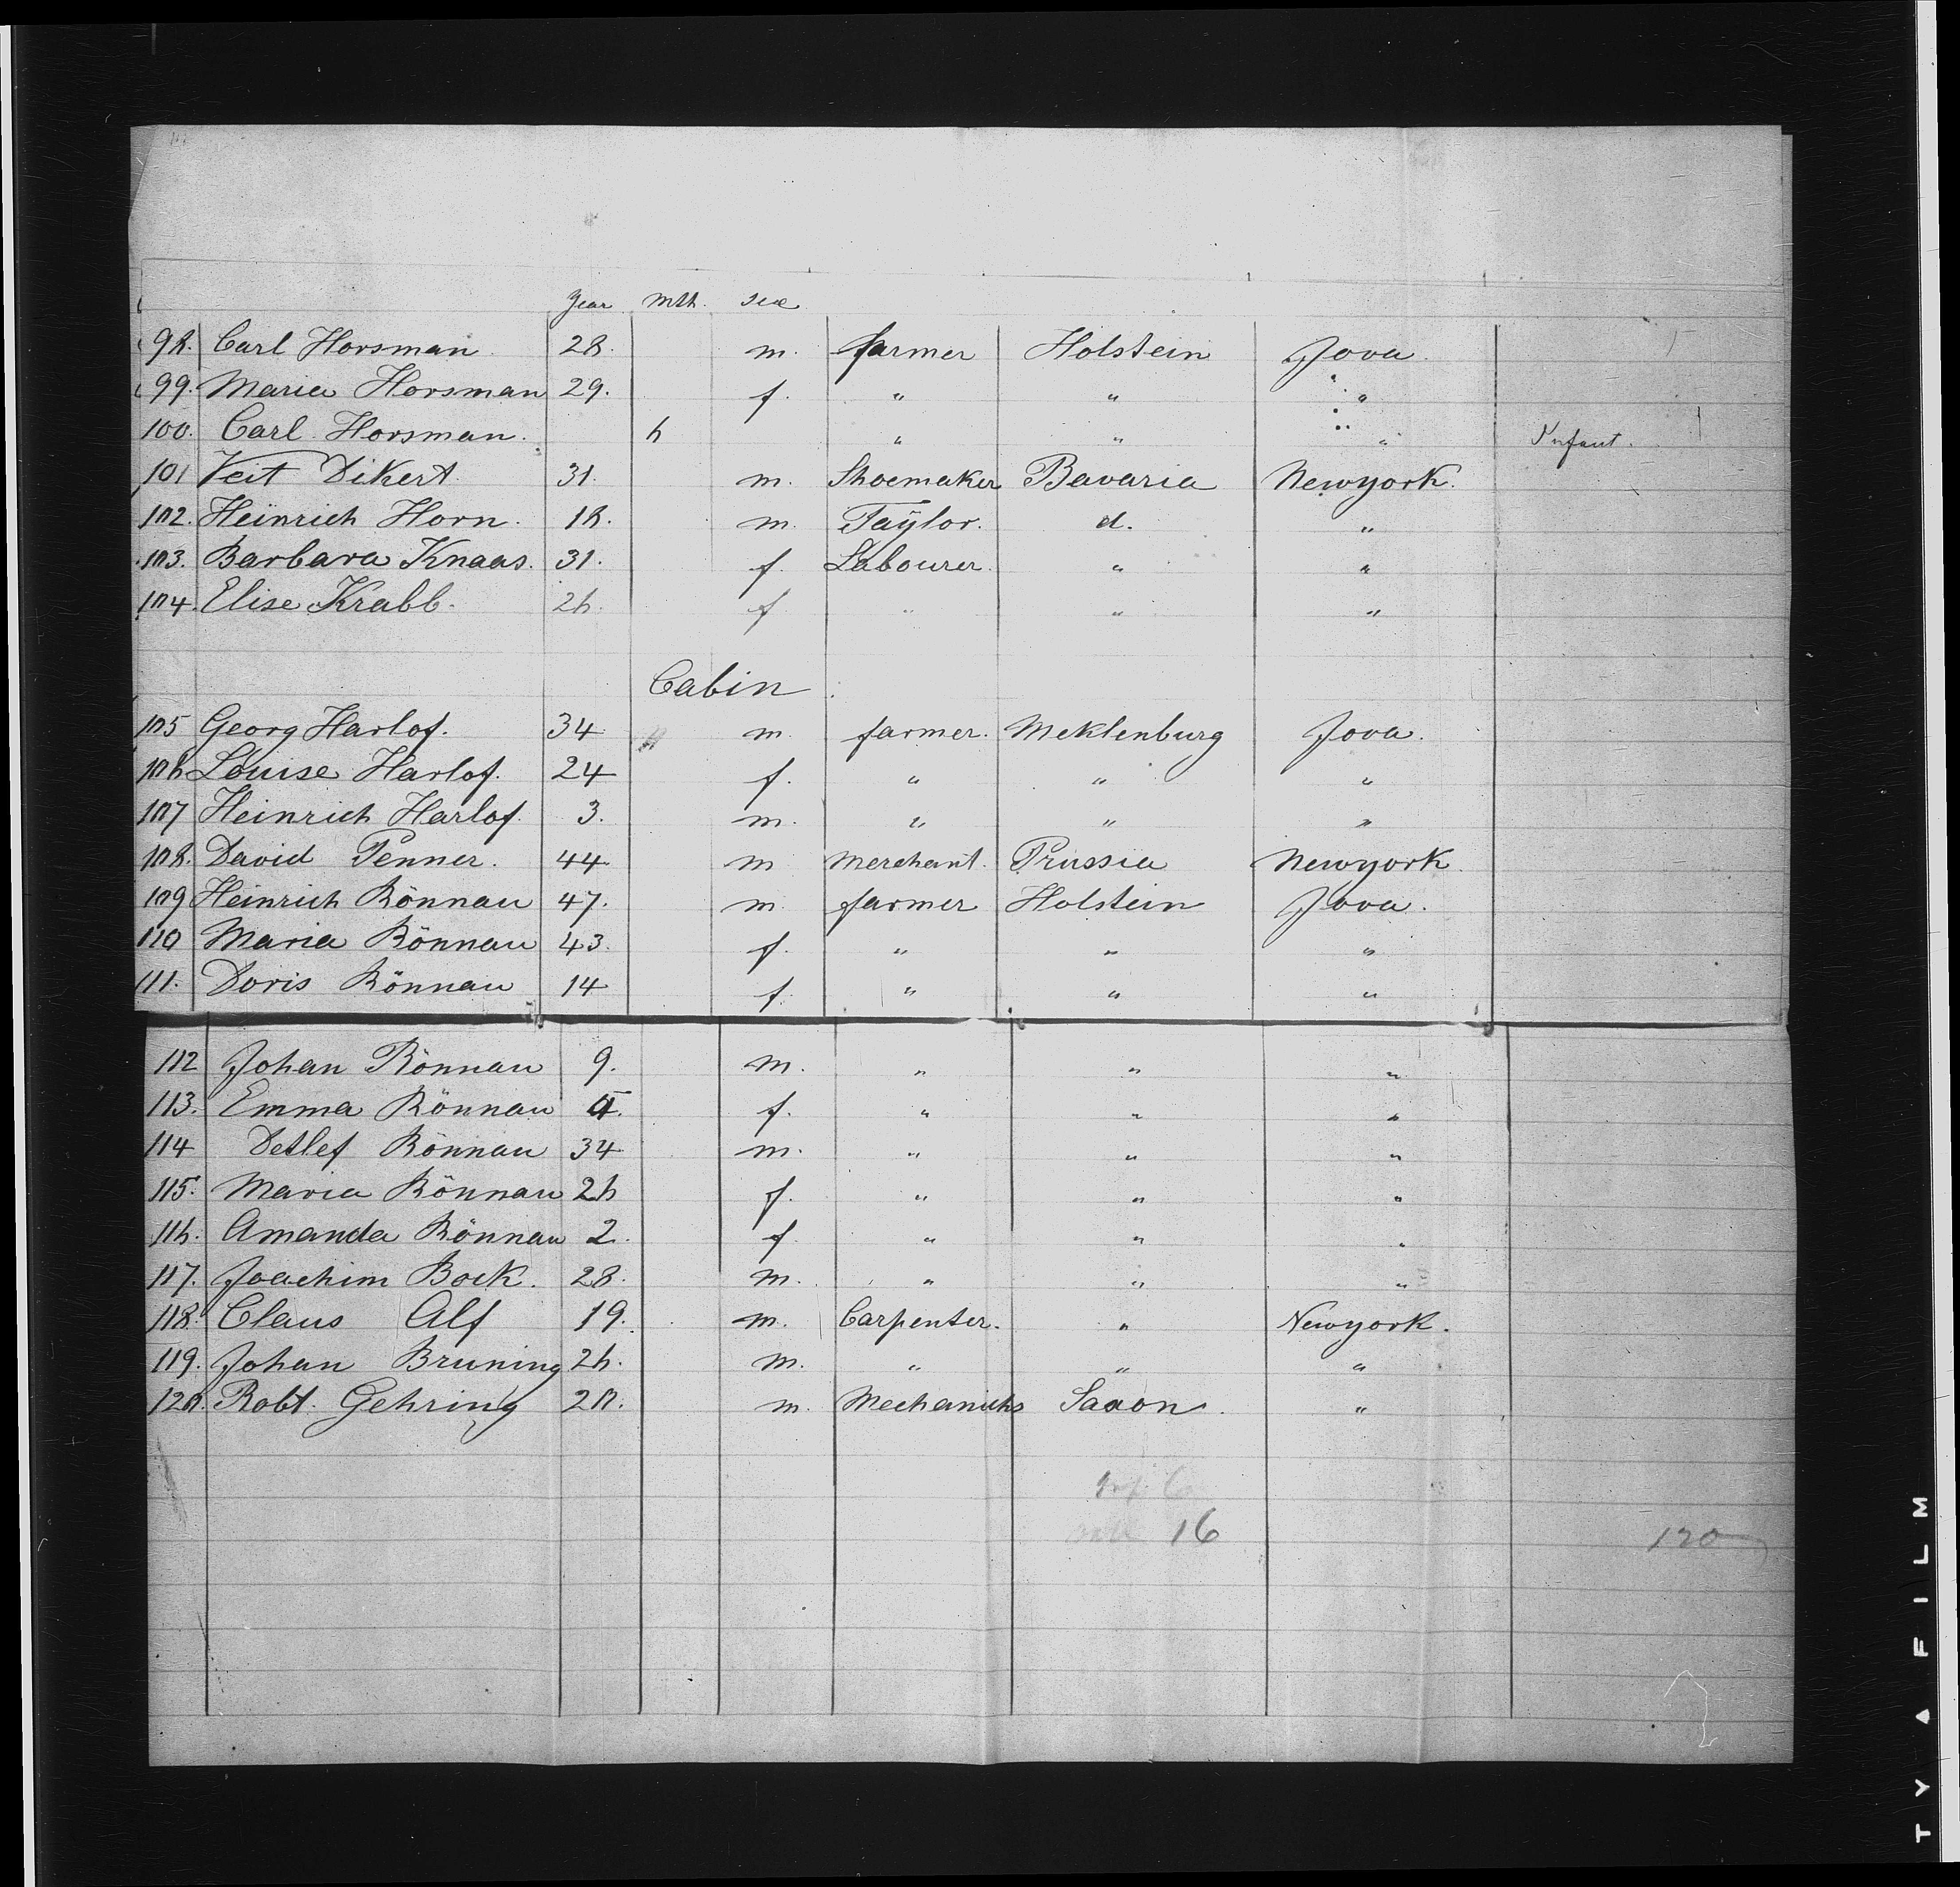 Year Mth. sex
98. Carl Horsman. 28. m. farmer Holstein Jova.
99. Maria Horsman 29. f. " " "
100. Carl Horsman. 6 " " " Infant.
101 Veit Dikert 31. m. Shoemaker Bavaria Newyork.
102. Heinrich Horn. 18. m. Taÿlor. d. "
103. Barbara Knaas. 31. f. Labourer. " "
104. Elise Krabb. 26. f. " " "
Cabin
105 Georg Harlof. 34 m. farmer. Meklenburg Jova.
106 Louise Harlof. 24 f. " " "
107 Heinrich Harlof. 3. m. " " "
108. David Penner. 44 m Merchant. Prussia Newyork.
109 Heinrich Rönnau 47. m. farmer Holstein Jova.
110 Maria Rönnau 43. f. " " "
111. Doris Rönnau 14 f. " " "
112 Johan Rönnau 9. m. " " "
113. Emma Rönnau f. " " "
114 Detlef Rönnau 34 m. " " "
115. Maria Rönnau 26 f. " " "
116. Amanda Rönnau 2. f. " " "
117. Joachim Bock. 28. m. " " "
118. Claus Alf 19. m. Carpenter. " Newyork.
119. Johan Bruning 26. m. " " "
120. Robt. Gehring 20. m. Mechanicks Saxon. "
16
120
TY ▲ FILM